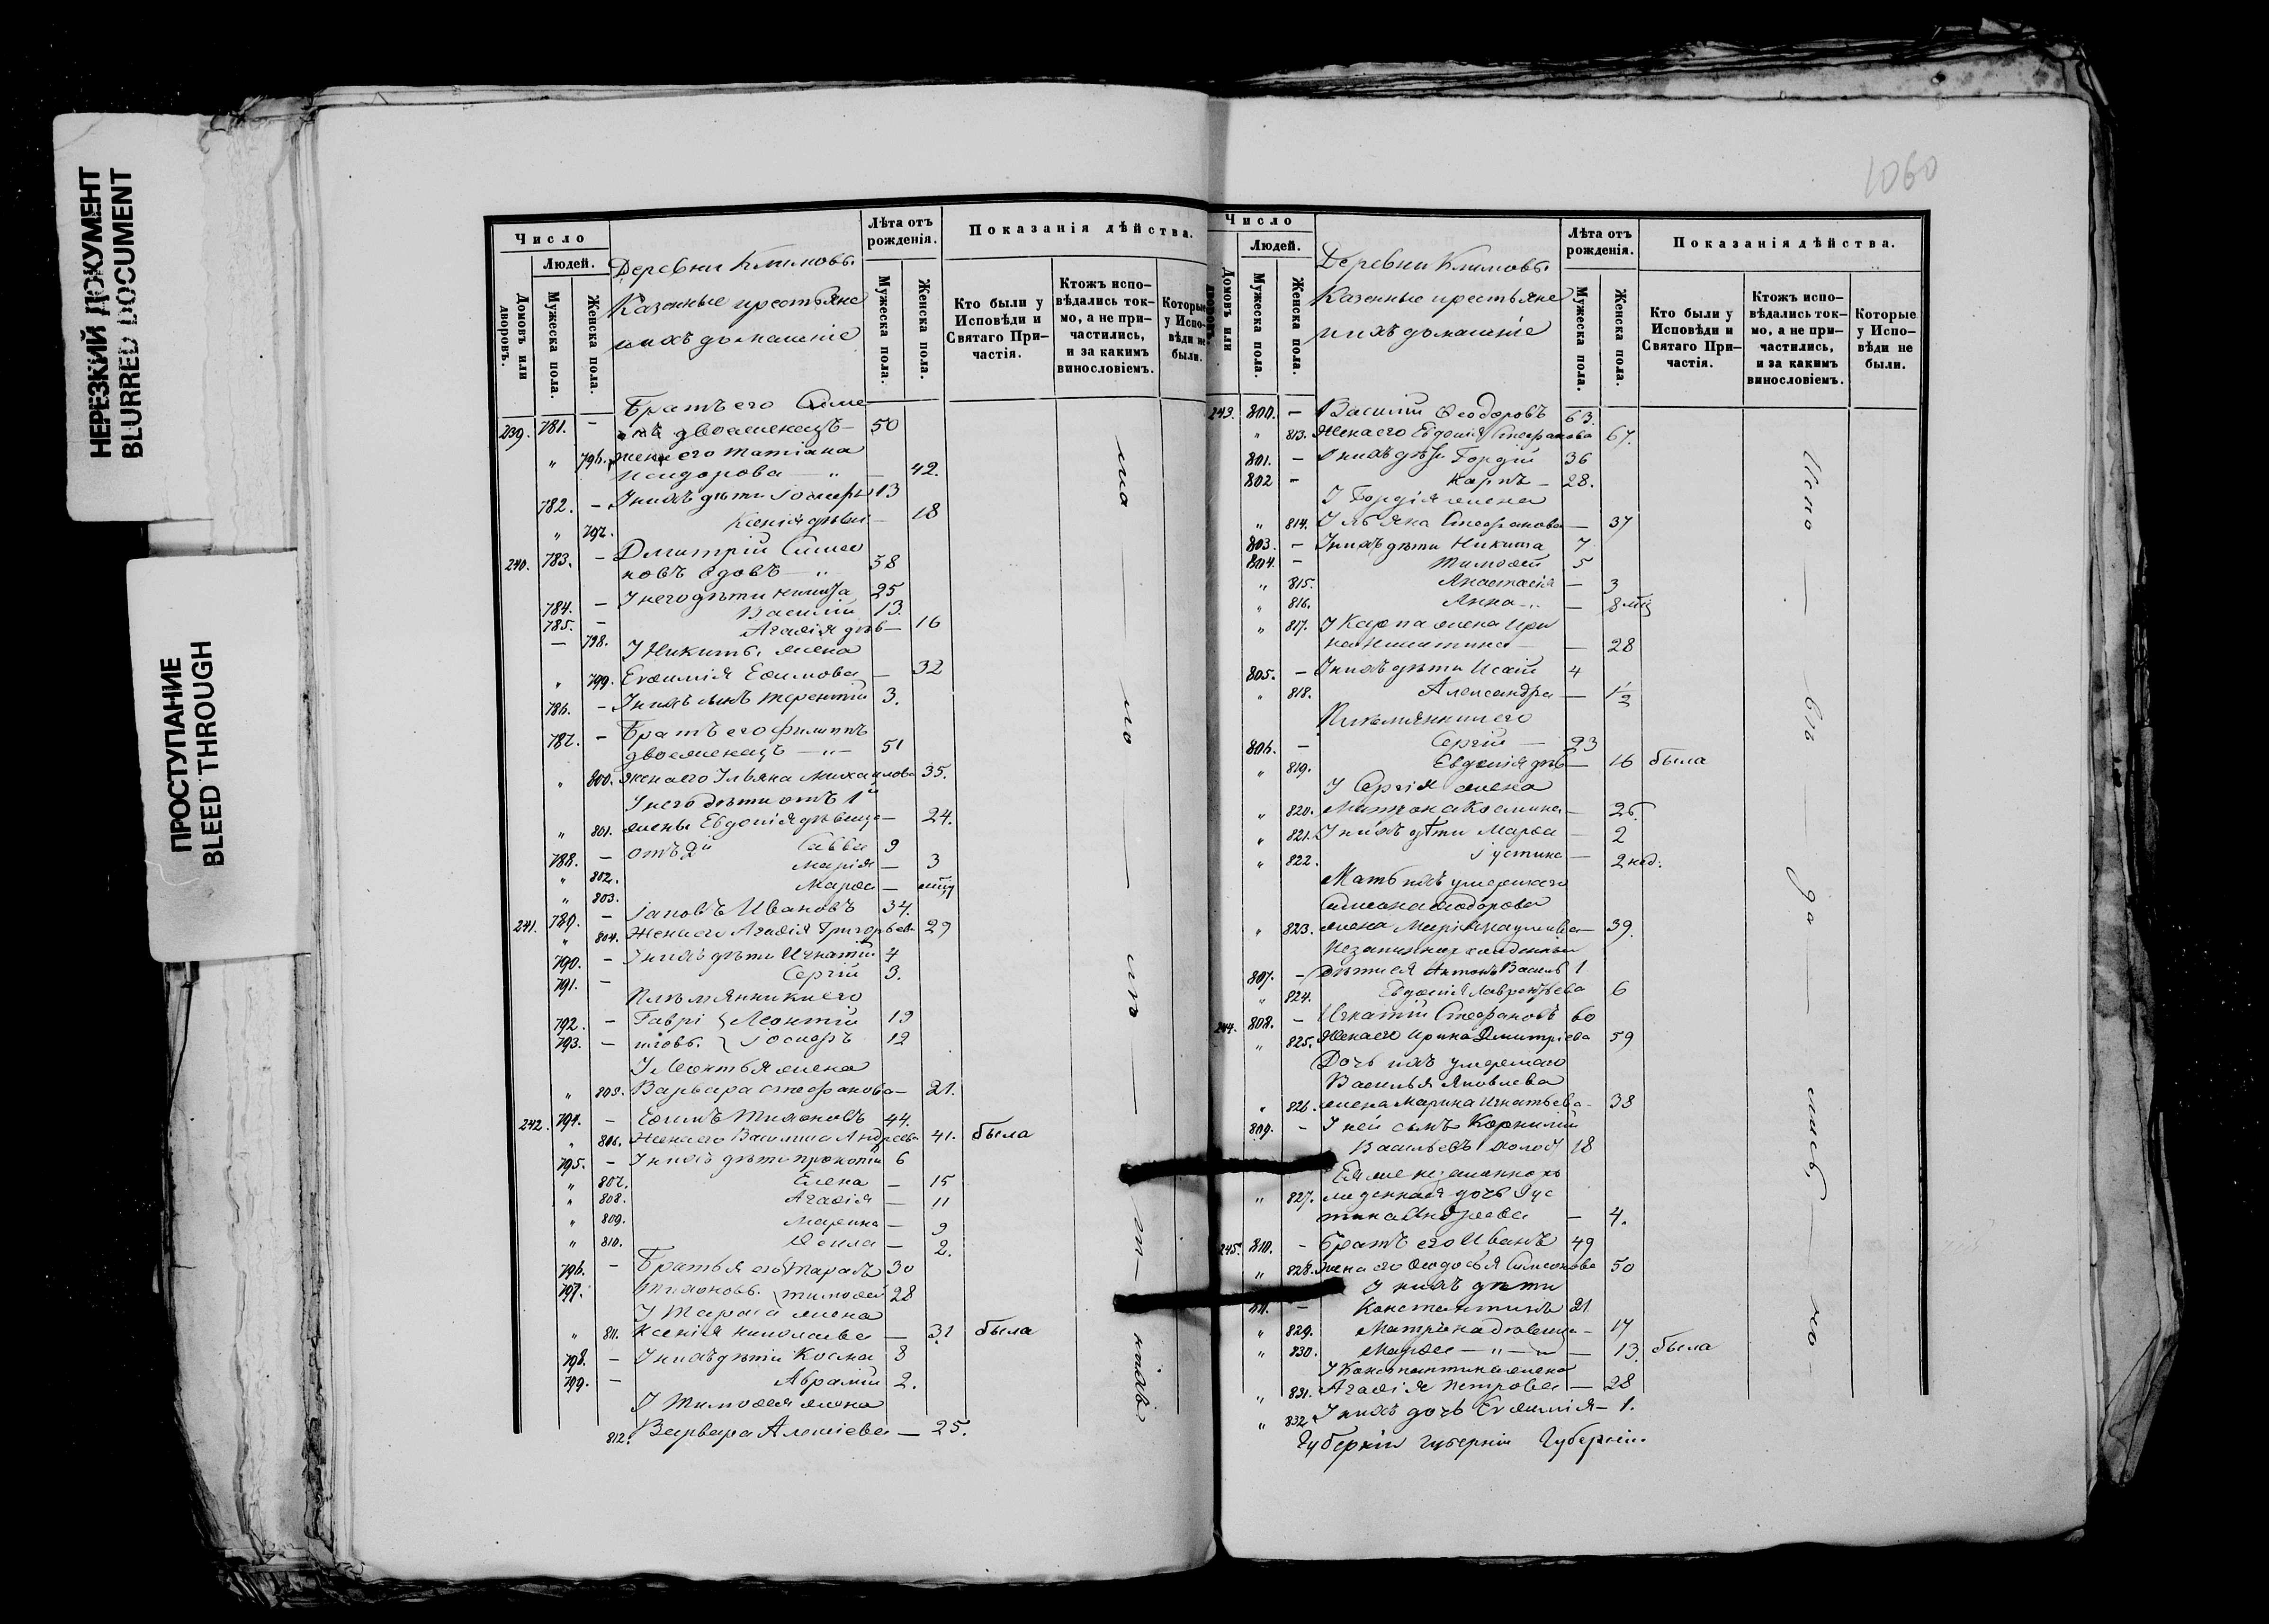 НЕРЕЗКИЙ ДОКУМЕНТ
BLURRED DOCUMENT
ПРОСТУПАНИЕ
BLEED THROUGH
Число
Людей.
Домовъ или дворовъ.
Мужеска пола.
Женска пола.
Деревни Климовы
Казенные крестьяне
и ихъ домашнiе
Лѣта отъ рожденiя.
Мужеска пола.
Женска пола.
Показанiя дѣйства.
Кто были у Исповѣди и Святаго При-частiя.
Ктожъ испо-вѣдались ток-мо, а не при-частились, и за какимъ винословiемъ.
Которые у Испо-вѣди не были.
Братъ его Симе
239. 781. – двоеженецъ – 50
" 796. жена его Татiана
Исидорова – " – 42.
782. – У нихъ дѣти Iосифъ 13
" 797. Ксенiя дѣви – 18
240. 783. – Дмитрiй Симео
новъ вдовъ – " 58
784. – У него дѣти Никита 25
785. – Василiй 13.
– 798. Агафiя дѣв – 16
У Никиты жена
" 799. Евфимiя Ефимова – 32
786. – У нихъ сынъ Терентiй 3.
787. – Братъ его Филиппъ
двоеженецъ – " – 51
" 800. Жена его Ульяна Михайлова 35.
У него дѣти отъ 1й
" 801. жены Евдокiя дѣвица – 24.
788. – отъ 2й Савва 9
" 802. Марiя – 3
" 803. Марфа –
241. 789. – Iаковъ Ивановъ 34.
" 804. Жена его Агафiя Григорьева 29
790. – У нихъ дѣти Игнатiй 4
791. – Сергiй 3.
Племянники его
792. – Гаврi { Леонтiй 19
793. – иловы. { Iосифъ 12
У Леонтья жена
" 805. Варвара Стефанова – 21.
242. 794. – Ефимъ Тихоновъ 44.
" 806. Жена его Василиса Андреева 41. была
795. – У нихъ дѣти Прокопiй 6
" 807. Елена – 15
" 808. Агафiя – 11
" 809. Марина – 9
" 810. – 2.
796. – Братья его { Тарасъ 30
797. Тихоновы. { Тимофей 28
У Тараса жена
" 811. Ксенiя Николаева – 31 была
798. – У нихъ дѣти Косма 8
799. – Абрамiй 2.
У Тимофея жена
812. Варвара Алексiева – 25.
1060
Число
Людей.
Домовъ или дворовъ.
Мужеска пола.
Женска пола.
Деревни Климовы
Казенные крестьяне
и ихъ домашнiе
Лѣта отъ рожденiя.
Мужеска пола.
Женска пола.
Показанiя дѣйства.
Кто были у Исповѣди и Святаго При-частiя.
Ктожъ испо-вѣдались ток-мо, а не при-частились, и за какимъ винословiемъ.
Которые у Испо-вѣди не были.
243. 800. – Василiй Феодоровъ 63.
" 813. Жена его Евдокiя Стефанова 67.
801. – У нихъ дѣти Гордiй 36
802 – Карпъ – 28.
У Гордiя жена
" 814. Ульяна Стефанова – 37
803. – У нихъ дѣти Никита 7
804. – Тимофей 5
" 815. Анастасiя – 3
" 816. Анна – " – 8 мѣц
" 817. У Карпа жена Ири
на Никитина – – 28
805. – У нихъ дѣти Исаiй 4
" 818. Александра – 1½
Племянники его
806. – Сергiй – 23
" 819. Евдокiя дѣв – 16 была
У Сергiя жена
" 820. Матрона Космина – 26.
" 821. У нихъ дѣти Марфа – 2
" 822. Iустина – 2 нед.
Мать ихъ умершаго
Симеона Феодорова
" 823. жена Марiя Наумова – 39.
Незаконнорожденныя
807. – дѣти ея Антонъ Васильв 1
" 824. Евдокiя Лаврентьева 6
244. 808. – Игнатiй Стефановъ 60
" 825. Жена его Ирина Дмитрiева 59
Дочь ихъ умершаго
Василья Яковлева
" 826. жена Марина Игнатьева – 38
809. – У ней сынъ Корнилiй
Васильевъ холост 18
Ея же незаконнорож
" 827. жденная дочь Iус
тина Андреева – 4.
245. 810. – Братъ его Иванъ 49
" 828. Жена его Феодосья Симеонова 50
У нихъ дѣти
811. – Константинъ 21
" 829. Матрона дѣвица – 17
" 830. Марфа – " – " – 13. была
У Константина жена
" 831. Агафiя Петрова – 28
" 832. У нихъ дочь Евфимiя – 1.
Губернiи Губернiи Губернiи.
Испо – вѣ – да – лись – но –